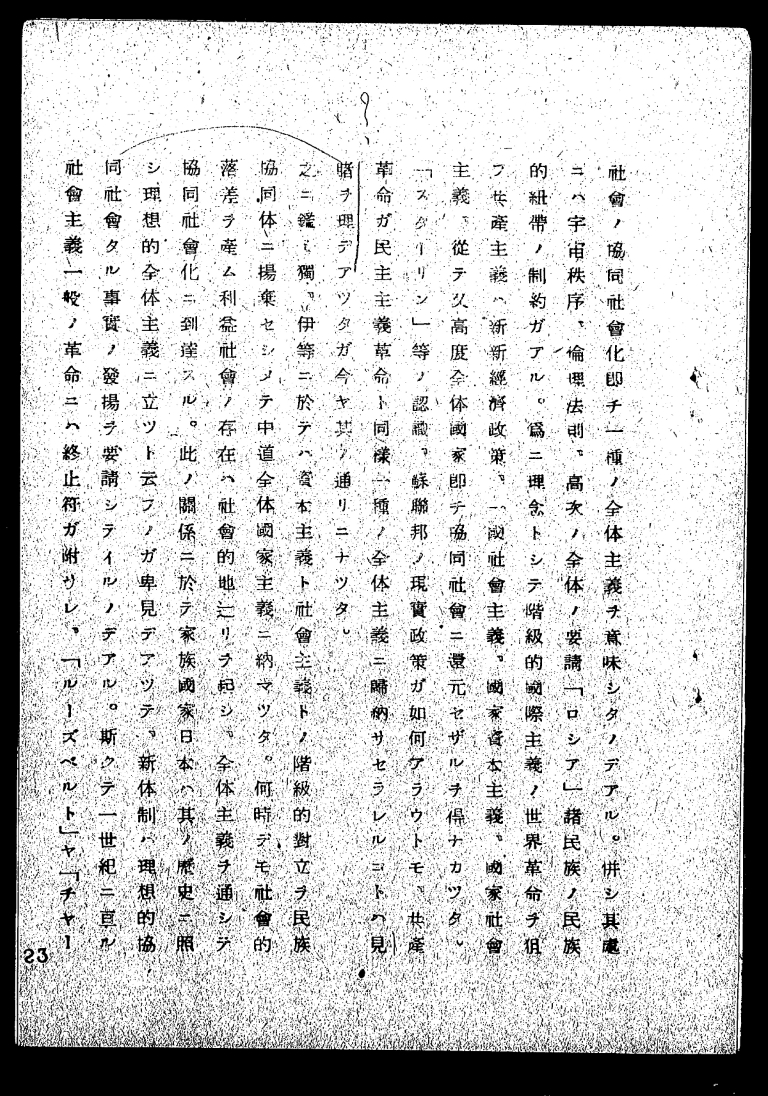 社會ノ協同社會化卽チ一種ノ全体主義ヲ意味シタノデアル。併シ其處
ニハ宇宙秩序、倫理法則。高次ノ全体ノ要請「ロシア」諸民族ノ民族
的紐帶ノ制約ガアル。爲ニ理念トシテ階級的國際主義ノ世界革命ヲ狙
フ共產主義ハ新新經濟政策。一國社會主義。國家資本主義。國家社會
主義。從テ又高度全体國家卽チ協同社會ニ還元セザルヲ得ナカツタ。
「スターリン」等ノ認識。蘇聯邦ノ現實政策ガ如何アラウトモ、共產
革命ガ民主主義革命ト同樣一種ノ全体主義ニ歸納サセラレルコトハ見
賭ヲ理デアツタガ今ヤ其ノ通リニナツタ。
之ニ鑑ミ獨。伊等ニ於テハ資本主義ト社會主義トノ階級的對立ヲ民族
協同体ニ揚棄セシメテ中道全体國家主義ニ納マツタ。何時デモ社會的
落差ヲ產ム利益社會ノ存在ハ社會的地辷リヲ起シ、全体主義ヲ通シテ
協同社會化ニ到達スル。此ノ關係ニ於テ家族國家日本ハ其ノ歷史ニ照
シ理想的全体主義ニ立ツト云フノガ卑見デアツテ。新体制ハ理想的協
同社會タル事實ノ發揚ヲ要請シテイルノデアル。斯クテ一世紀ニ亘ル
社會主義一般ノ革命ニハ終止符ガ附サレ、「ルーズベルト」ヤ「チヤー
23